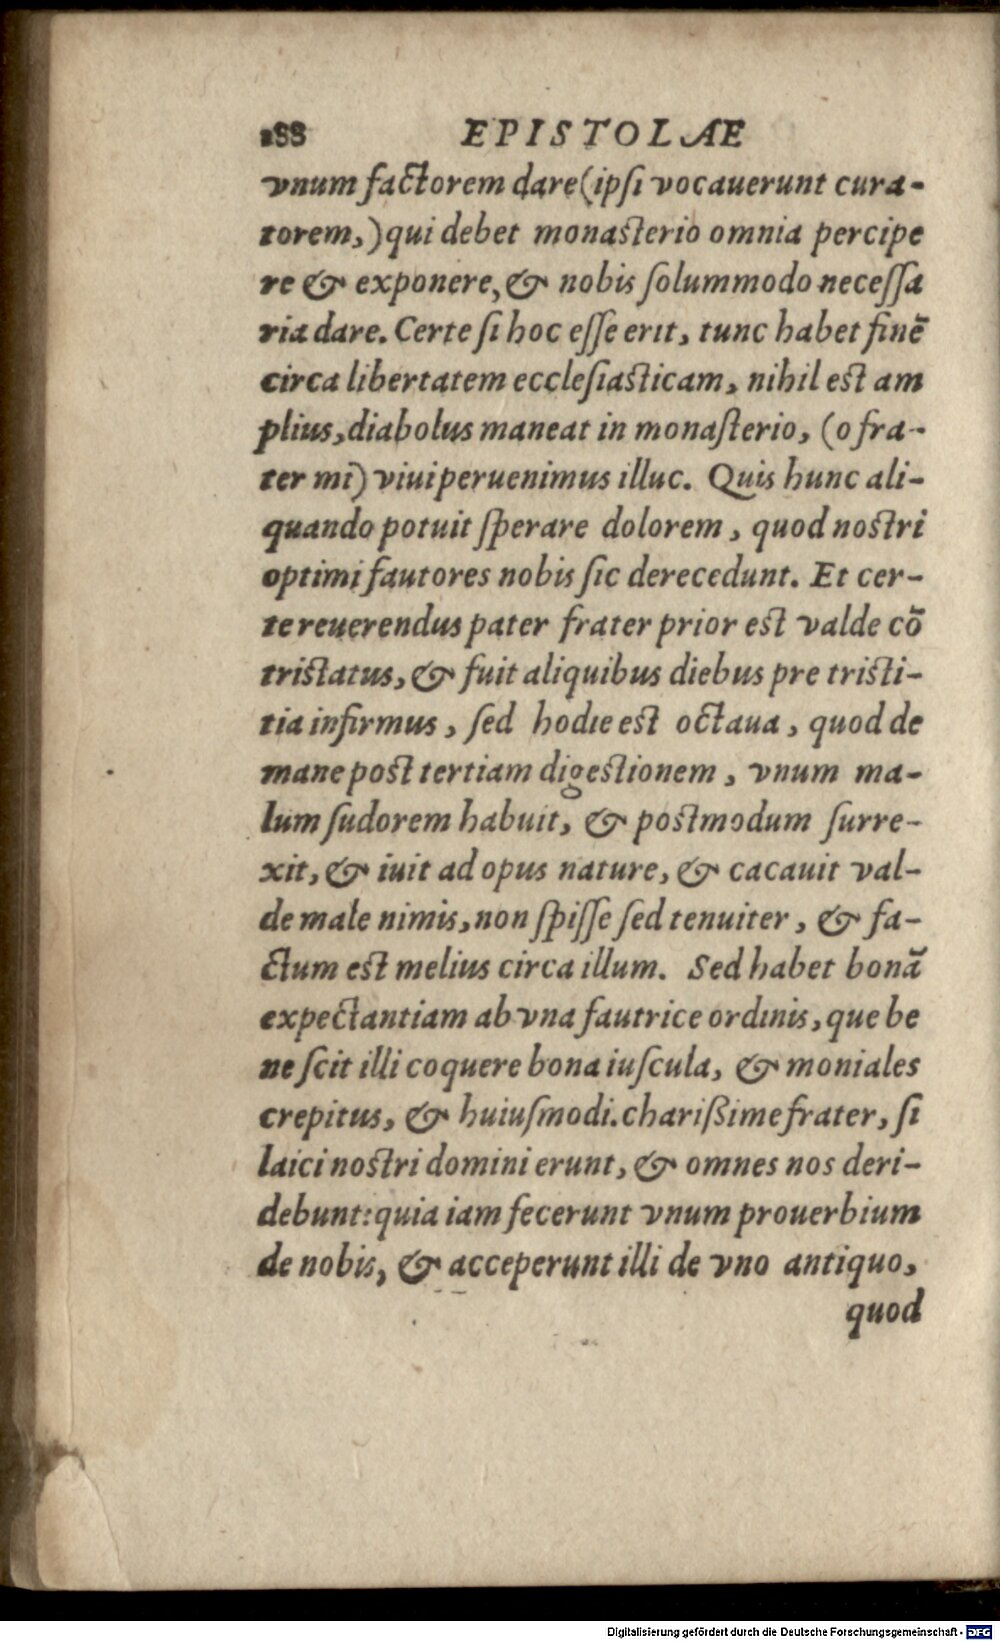 188 EPISTOLAE
vnum factorem dare (ipsi vocauerunt cura-
torem,) qui debet monasterio omnia percipe
re & exponere, & nobis solummodo necessa
ria dare. Certe si hoc esse erit, tunc habet finē
circa libertatem ecclesiasticam, nihil est am
plius, diabolus maneat in monasterio, (o fra-
ter mi) viui peruenimus illuc. Quis hunc ali-
quando potuit sperare dolorem, quod nostri
optimi fautores nobis sic derecedunt. Et cer-
te reuerendus pater frater prior est valde cō
tristatus, & fuit aliquibus diebus pre tristi-
tia infirmus, sed hodie est octaua, quod de
mane post tertiam digestionem, vnum ma-
lum sudorem habuit, & postmodum surre-
xit, & iuit ad opus nature, & cacauit val-
de male nimis, non spisse sed tenuiter, & fa-
ctum est melius circa illum. Sed habet bonā
expectantiam ab vna fautrice ordinis, que be
ne scit illi coquere bona iuscula, & moniales
crepitus, & huiusmodi. charißime frater, si
laici nostri domini erunt, & omnes nos deri-
debunt: quia iam fecerunt vnum prouerbium
de nobis, & acceperunt illi de vno antiquo,
quod
Digitalisierung gefördert durch die Deutsche Forschungsgemeinschaft - DFG